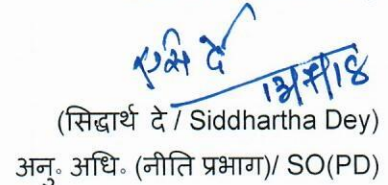 दे
(सिद्धार्थ दे / Siddhartha Dey)
अनु॰ अधि॰ (नीति प्रभाग)/ SO(PD)